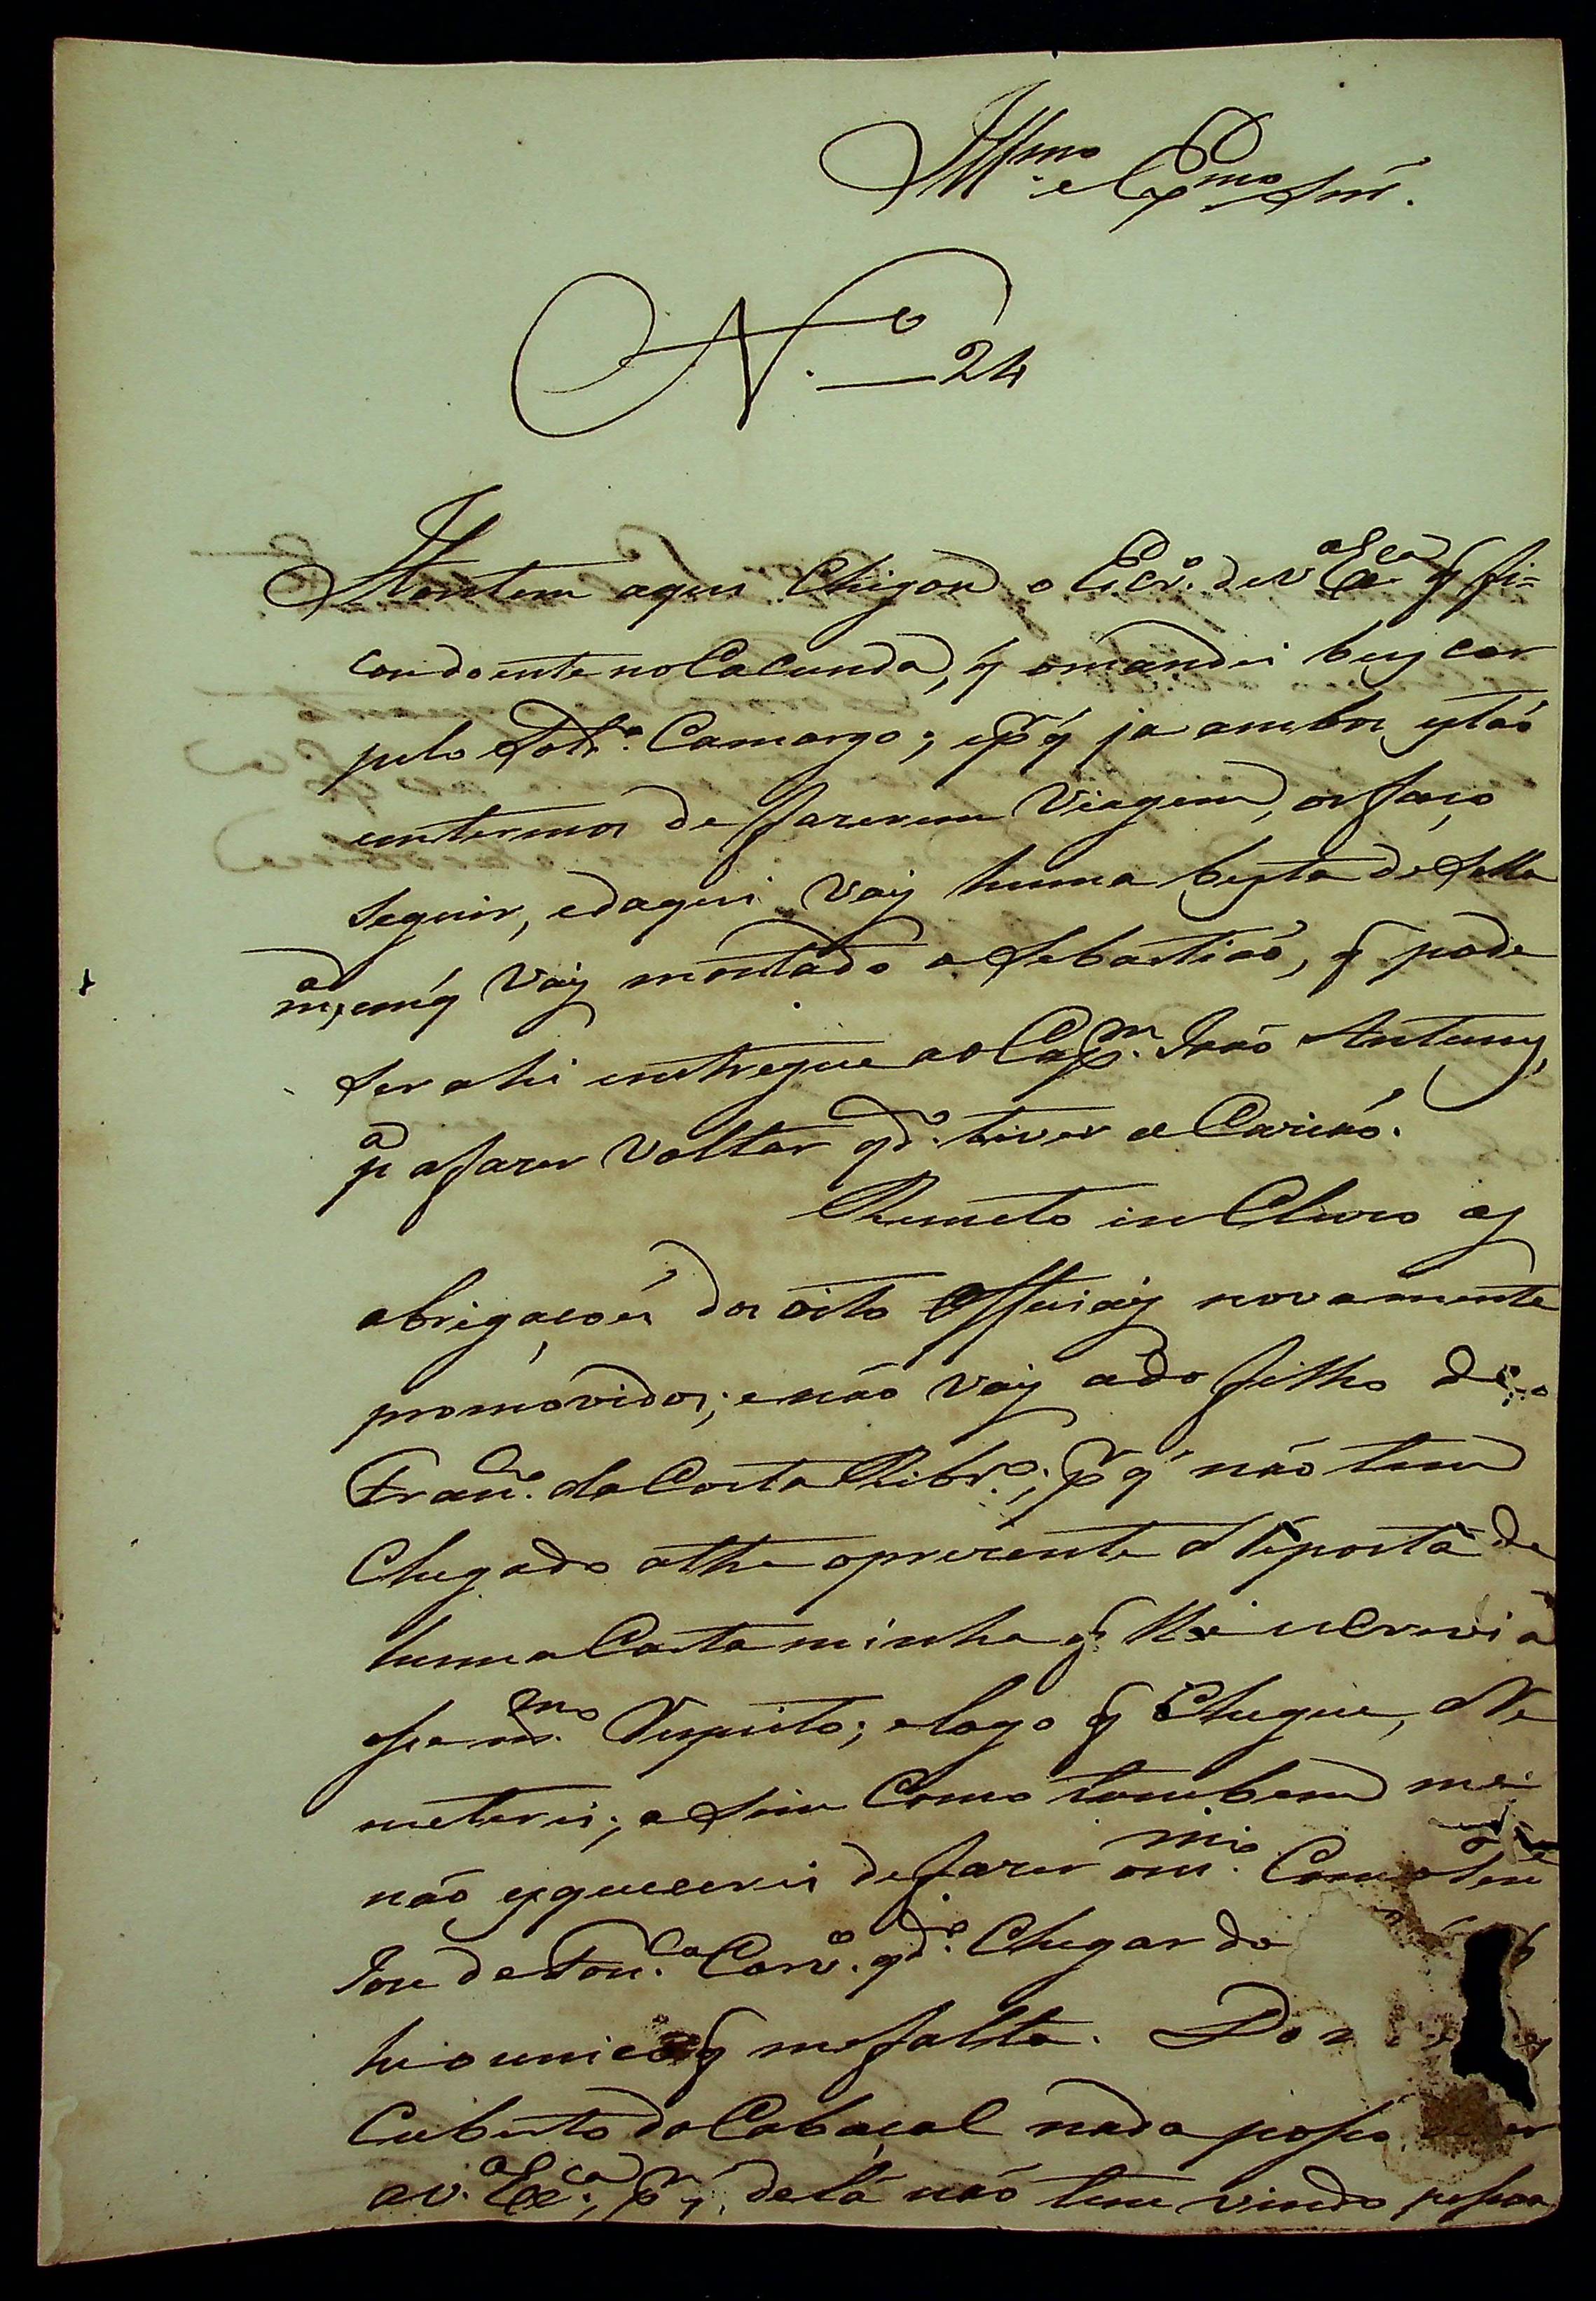 Ill.mo e Ex.mo Snr.
N.o 24
Hontem aqui Chigou o Escr.o de V.a Ex.ca q fi-
cou doente no Cacunda, q o mandei buscar
pelo Sold.o Camargo; e pr q ja ambos estaó
em termos de fazerem Viagem, os faço
seguir, e daqui vay huma besta de Sella
m.a, em q vay montado o Sebastiaó, q pode
ser ahi entregue ao Cap.m Joaó Antunes,
p.a a fazer voltar qd.o tiver occaziaó.
Remeto incluzo as
obrigaçoés dos oito Officiáes novamente
promovidos; e naó vay a do filho de
Fran.co da Costa Ribr.o; pr q naó tem
Chegado athe o prezente a Resposta de
huma Carta minha q lhe escrevi a
esse m.mo Respeito; e logo q Chegue, a Re
meterei; asim Como tambem me
naó esquecerei de fazer o m.mo Com o Ten.e
Joze da Fon.ca Carv.o qd.o Chegar do
he o unico q me falta. Do
Cuberto do Cabaçal nada posso dizer
a V.a Ex.ca, pr q de lá naó tem vindo pessoa